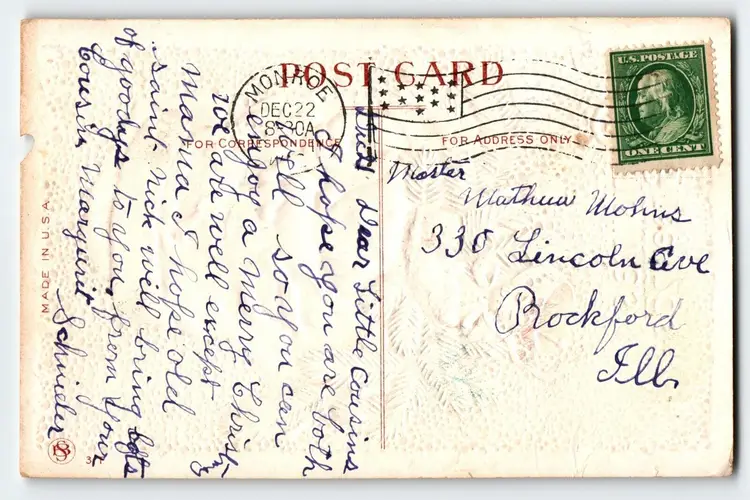 POST CARD
MONROE
DEC 22
8-30A
U.S. POSTAGE
ONE CENT
FOR CORRESPONDENCE
FOR ADDRESS ONLY
Dear Little Cousins
I hope you are both
well so you can
enjoy a merry Christ
we are well except
Mama I hope old
saint Nick will bring lots
of goodys to you, from your
Cousin, Margurit
Schnieder
Master
Mathew Mohns
330 Lincoln Ave
Rockford
Ill.
MADE IN U.S.A.